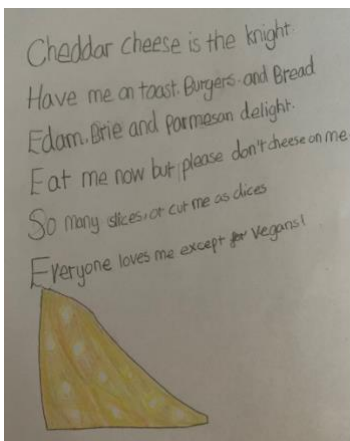 Cheddar cheese is the knight
Have me on toast. Burgers. and Bread
Edam. Brie and parmesan delight.
Eat me now but please don't cheese on me
So many slices, or cut me as dices
Everyone loves me except for Vegans!